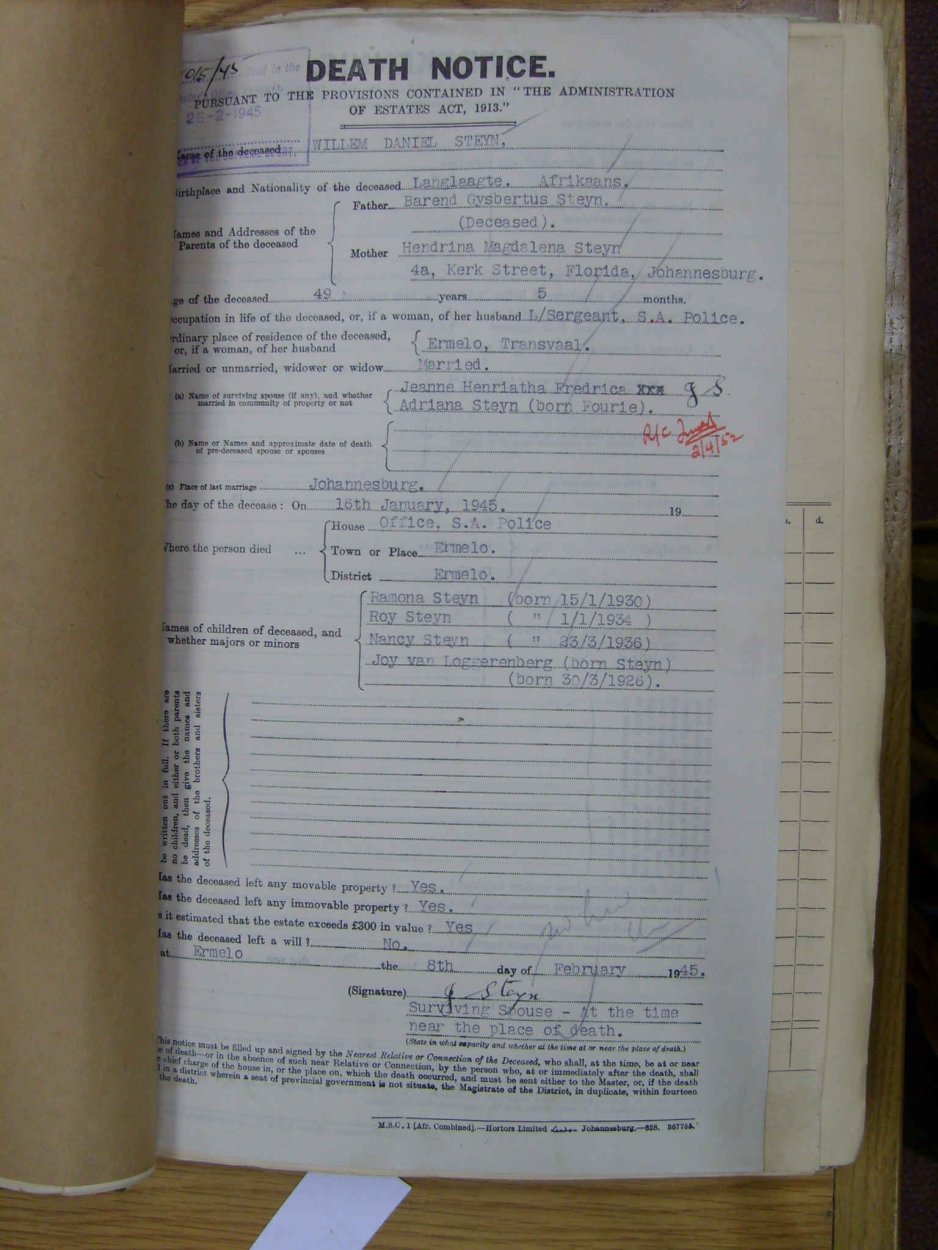 015/45
DEATH NOTICE.
PURSUANT TO THE PROVISIONS CONTAINED IN "THE ADMINISTRATION
OF ESTATES ACT, 1913."
26-2-1945
Name of the deceased WILLEM DANIEL STEYN,
Birthplace and Nationality of the deceased Langlaagte. Afrikaans.
Names and Addresses of the Parents of the deceased
Father Barend Gysbertus Steyn.
(Deceased).
Mother Hendrina Magdalena Steyn
4a, Kerk Street, Florida, Johannesburg.
ge of the deceased 49 years 5 months.
ccupation in life of the deceased, or, if a woman, of her husband L/Sergeant, S.A. Police.
rdinary place of residence of the deceased, or, if a woman, of her husband Ermelo, Transvaal.
arried or unmarried, widower or widow Married.
(a) Name of surviving spouse (if any), and whether married in community of property or not
Jeanne Henriatha Fredrica xxx J S
Adriana Steyn (born Fourie).
2/4/52
(b) Name or Names and approximate date of death of pre-deceased spouse or spouses
(c) Place of last marriage Johannesburg.
he day of the decease: On 16th January, 1945. 19
Where the person died ...
House Office, S.A. Police
Town or Place Ermelo.
District Ermelo.
ames of children of deceased, and whether majors or minors
Ramona Steyn (born 15/1/1930)
Roy Steyn ( " 1/1/1934 )
Nancy Steyn ( " 23/3/1936)
Joy van Loggerenberg (born Steyn)
(born 30/3/1926).
be written out in full. If there are
no children, and either or both parents
be dead, then give the names and
addresses of the brothers and sisters
of the deceased.
as the deceased left any movable property ? Yes.
as the deceased left any immovable property ? Yes.
s it estimated that the estate exceeds £300 in value ? Yes
as the deceased left a will ? No.
at Ermelo the 8th day of February 1945.
(Signature) J Steyn
Surviving Spouse - At the time
near the place of death.
(State in what capacity and whether at the time at or near the place of death.)
his notice must be filled up and signed by the Nearest Relative or Connection of the Deceased, who shall, at the time, be at or near
e of death—or in the absence of such near Relative or Connection, by the person who, at or immediately after the death, shall
chief charge of the house in, or the place on, which the death occurred, and must be sent either to the Master, or, if the death
in a district wherein a seat of provincial government is not situate, the Magistrate of the District, in duplicate, within fourteen
the death.
M.S.C. 1 [Afr. Combined].—Hortors Limited Johannesburg.—628. 367755.
d.